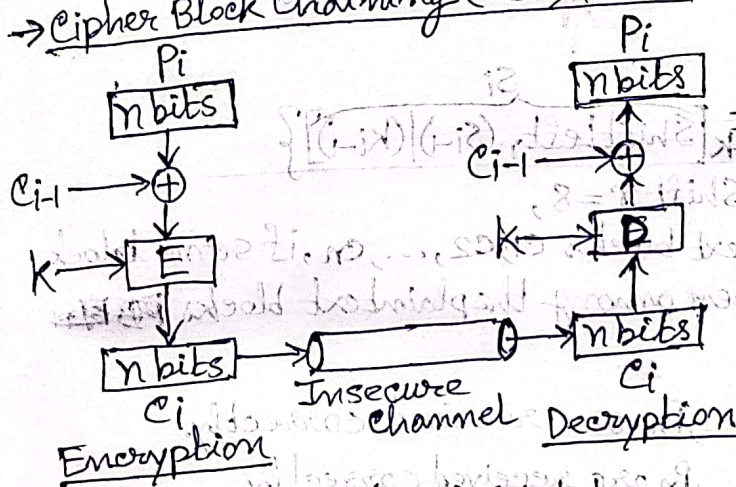 → Cipher Block Chaining (
Pi
n bits
Ci-1 → ⊕
K → E
n bits
Ci
Encryption
Insecure
channel
Pi
n bits
Ci-1 → ⊕
K → D
n bits
Ci
Decryption